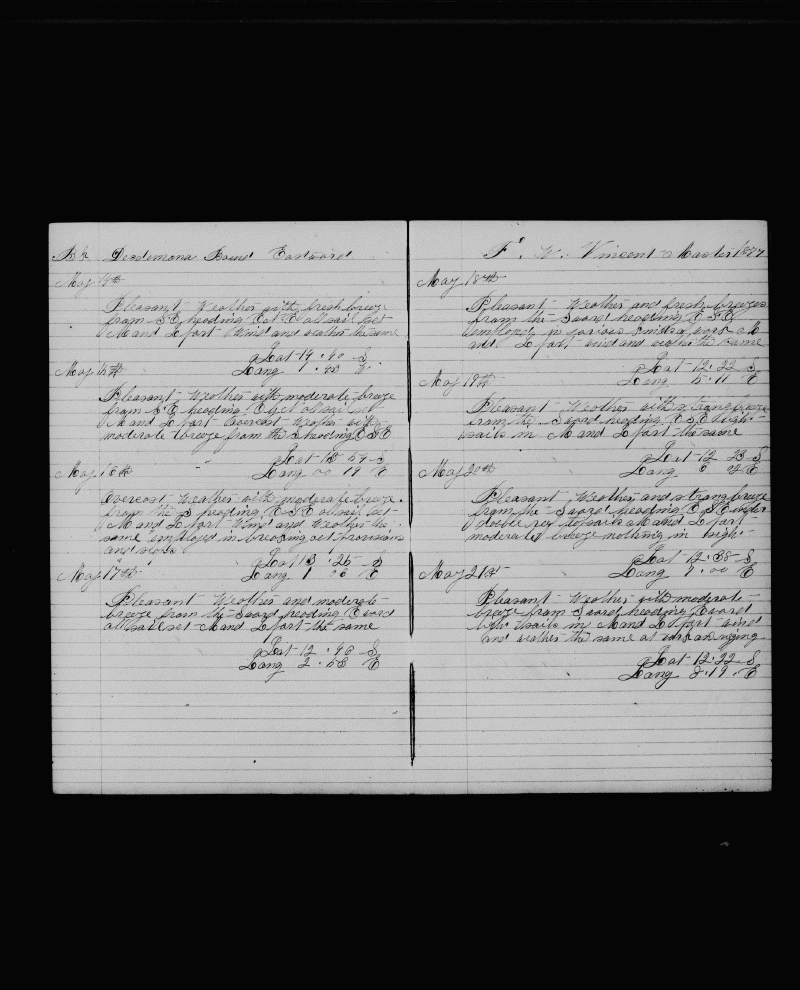 Bk Desdemona Bound Eastward
May 14th
Pleasant Weather with fresh breeze
from S.E heading E all sail set
M and L part Wind and weather the same
Lat 14 . 40 S
Long 1 . 43
May 15th
Pleasant Weather with moderate breeze
from S.E heading all sail set
M and L part Overcast Weather with
moderate breeze from the S heading E S E
Lat 13 54 S
Long 00 19 E
May 16th
Overcast Weather with moderate breeze
from the S heading E S E all sail set
M and L part Wind and Weather the
same employed in breaking out provisions
and slops
Lat 13 . 25 S
Long 1 00 E
May 17th
Pleasant Weather and moderate
breeze from the S ward heading E ward
all sail set M and L part the same
Lat 12 . 46 S
Long 2 . 58 E
F. W. Vincent Master 1877
May 18th
Pleasant Weather and fresh breezes
from the S ward heading E S E
employed in various
and L part wind and weather the same
Lat 12 . 22 S
Long 5 . 11 E
May 19th
Pleasant Weather with strong breeze
from the S ward heading E S E light
sails in M and L part the same
Lat 12 23 S
Long 6 E
May 20th
Pleasant Weather and strong breeze
from the S ward heading E S E under
double reef topsails M and L part
moderated breeze nothing in sight
Lat 12 . 38 S
Long 7 . 00 E
May 21st
Pleasant Weather with moderate
breeze from S ward heading E ward
light sails in M and L part wind
and weather the same at work on rigging
Lat 12 . 22 S
Long 8 . 19 . E